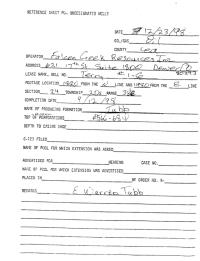 REFERENCE SHEET FOR UNDESIGNATED WELLS
DATE 12/23/98
OIL/GAS Oil
COUNTY Lea
OPERATOR Falcon Creek Resources Inc
ADDRESS 621 17th St. Suite 1800 Denver
LEASE NAME, WELL NO. Terry #1-6
FOOTAGE LOCATION FROM THE LINE AND FROM THE E LINE
SECTION 24 TOWNSHIP 20S RANGE
COMPLETION DATE 9/12/98
NAME OF PRODUCING FORMATION Tubb
TOP OF PERFORATIONS
DEPTH TO CASING SHOE
C-123 FILED
NAME OF POOL FOR WHICH EXTENSION WAS ASKED
ADVERTISED FOR HEARING CASE NO.
NAME OF POOL FOR WHICH EXTENSION WAS ADVERTISED
PLACED IN BY ORDER NO. R-
DETAILS E Warren Tubb